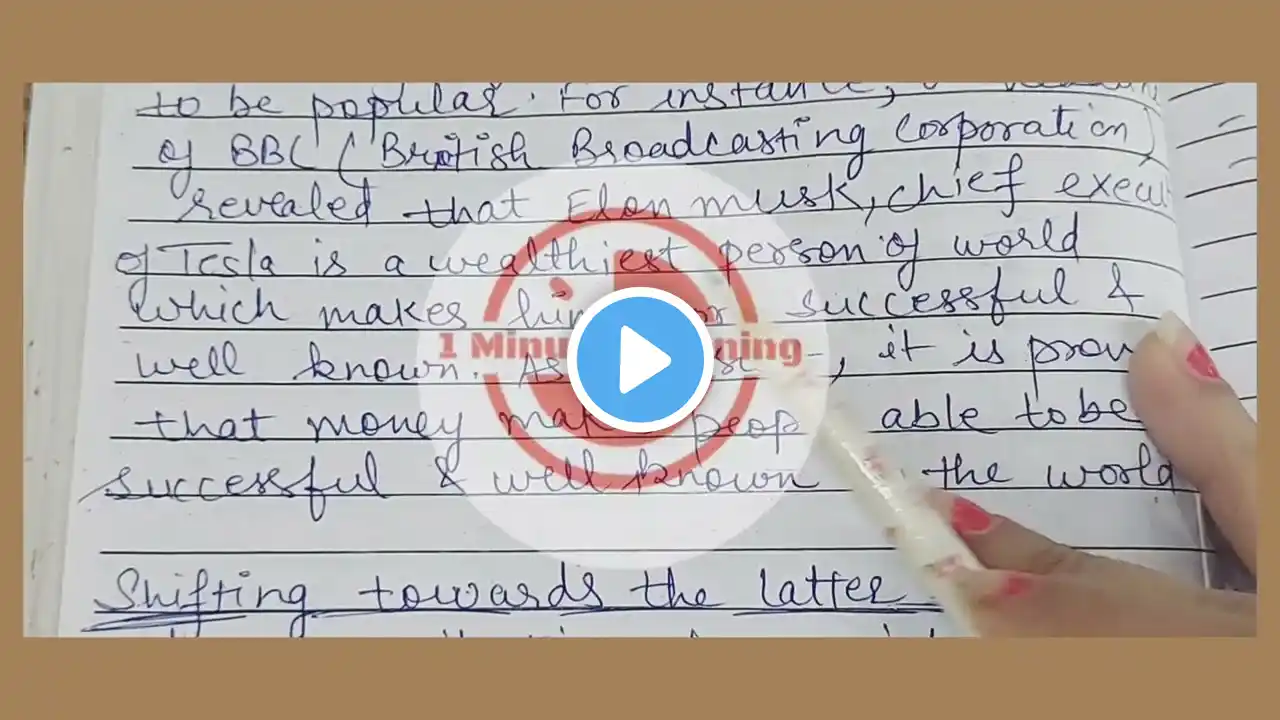 to be popular. For instance,
of BBC (British Broadcasting Corporation)
revealed that Elon musk, chief execu
of Tesla is a wealthiest person of world
which makes him successful &
well known. As, it is prov
that money make peop able to be
successful & well known the world
1 Minu ning
Shifting towards the latter